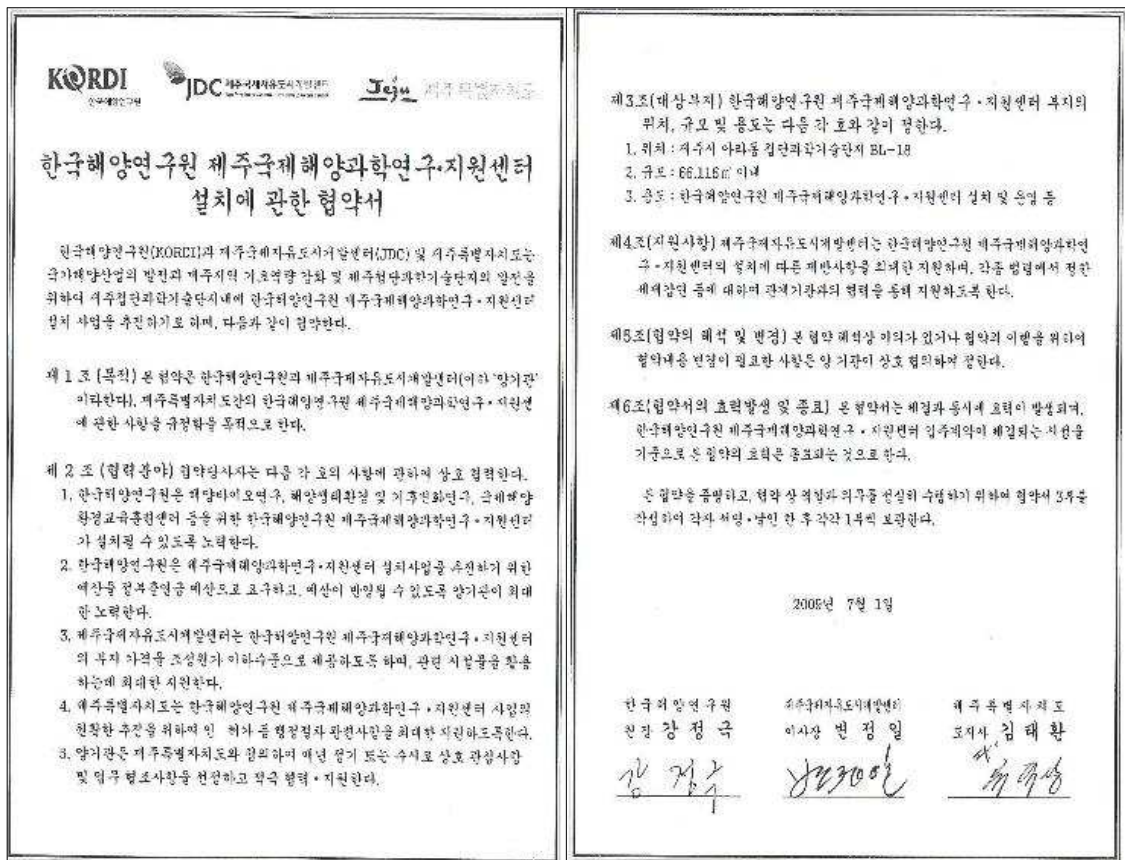 KORDI
한국해양연구원
JDC 제주국제자유도시개발센터
Jeju 제주특별자치도
한국해양연구원 제주국제해양과학연구·지원센터
설치에 관한 협약서
한국해양연구원(KORDI)과 제주국제자유도시개발센터(JDC) 및 제주특별자치도는
국가해양산업의 발전과 제주지역 기초역량 강화 및 제주첨단과학기술단지의 발전을
위하여 제주첨단과학기술단지내에 한국해양연구원 제주국제해양과학연구·지원센터
설치 사업을 추진하기로 하며, 다음과 같이 협약한다.
제 1 조 (목적) 본 협약은 한국해양연구원과 제주국제자유도시개발센터(이하 '양기관'
이라한다), 제주특별자치도간의 한국해양연구원 제주국제해양과학연구·지원센
에 관한 사항을 규정함을 목적으로 한다.
제 2 조 (협력분야) 협약당사자는 다음 각 호의 사항에 관하여 상호 협력한다.
1. 한국해양연구원은 해양바이오연구, 해양생태환경 및 기후변화연구, 국제해양
환경교육훈련센터 등을 위한 한국해양연구원 제주국제해양과학연구·지원센터
가 설치될 수 있도록 노력한다.
2. 한국해양연구원은 제주국제해양과학연구·지원센터 설치사업을 추진하기 위한
예산을 정부출연금 예산으로 요구하고, 예산이 반영될 수 있도록 양기관이 최대
한 노력한다.
3. 제주국제자유도시개발센터는 한국해양연구원 제주국제해양과학연구·지원센터
의 부지 가격을 조성원가 이하수준으로 제공하도록 하며, 관련 시설물을 활용
하는데 최대한 지원한다.
4. 제주특별자치도는 한국해양연구원 제주국제해양과학연구·지원센터 사업의
원활한 추진을 위하여 인 허가 등 행정절차 관련사항을 최대한 지원하도록한다.
5. 양기관은 제주특별자치도와 협의하여 매년 정기 또는 수시로 상호 관심사항
및 업무 협조사항을 선정하고 적극 협력·지원한다.
제3조(대상부지) 한국해양연구원 제주국제해양과학연구·지원센터 부지의
위치, 규모 및 용도는 다음 각 호와 같이 정한다.
1. 위치 : 제주시 아라동 첨단과학기술단지 BL-18
2. 규모 : 66,116㎡ 이내
3. 용도 : 한국해양연구원 제주국제해양과학연구·지원센터 설치 및 운영 등
제4조(지원사항) 제주국제자유도시개발센터는 한국해양연구원 제주국제해양과학연
구·지원센터의 설치에 따른 제반사항을 최대한 지원하며, 각종 법령에서 정한
세제감면 등에 대하여 관계기관과의 협력을 통해 지원하도록 한다.
제5조(협약의 해석 및 변경) 본 협약 해석상 이의가 있거나 협약의 이행을 위하여
협약내용 변경이 필요한 사항은 양 기관이 상호 협의하여 정한다.
제6조(협약서의 효력발생 및 종료) 본 협약서는 체결과 동시에 효력이 발생되며,
한국해양연구원 제주국제해양과학연구·지원센터 입주계약이 체결되는 시점을
기준으로 본 협약의 효력은 종료되는 것으로 한다.
본 협약을 증명하고, 협약 상 역할과 의무를 성실히 수행하기 위하여 협약서 3부를
작성하여 각자 서명·날인 한 후 각각 1부씩 보관한다.
2009년 7월 1일
한국해양연구원
원장 강정극
제주국제자유도시개발센터
이사장 변정일
제주특별자치도
도지사 김태환